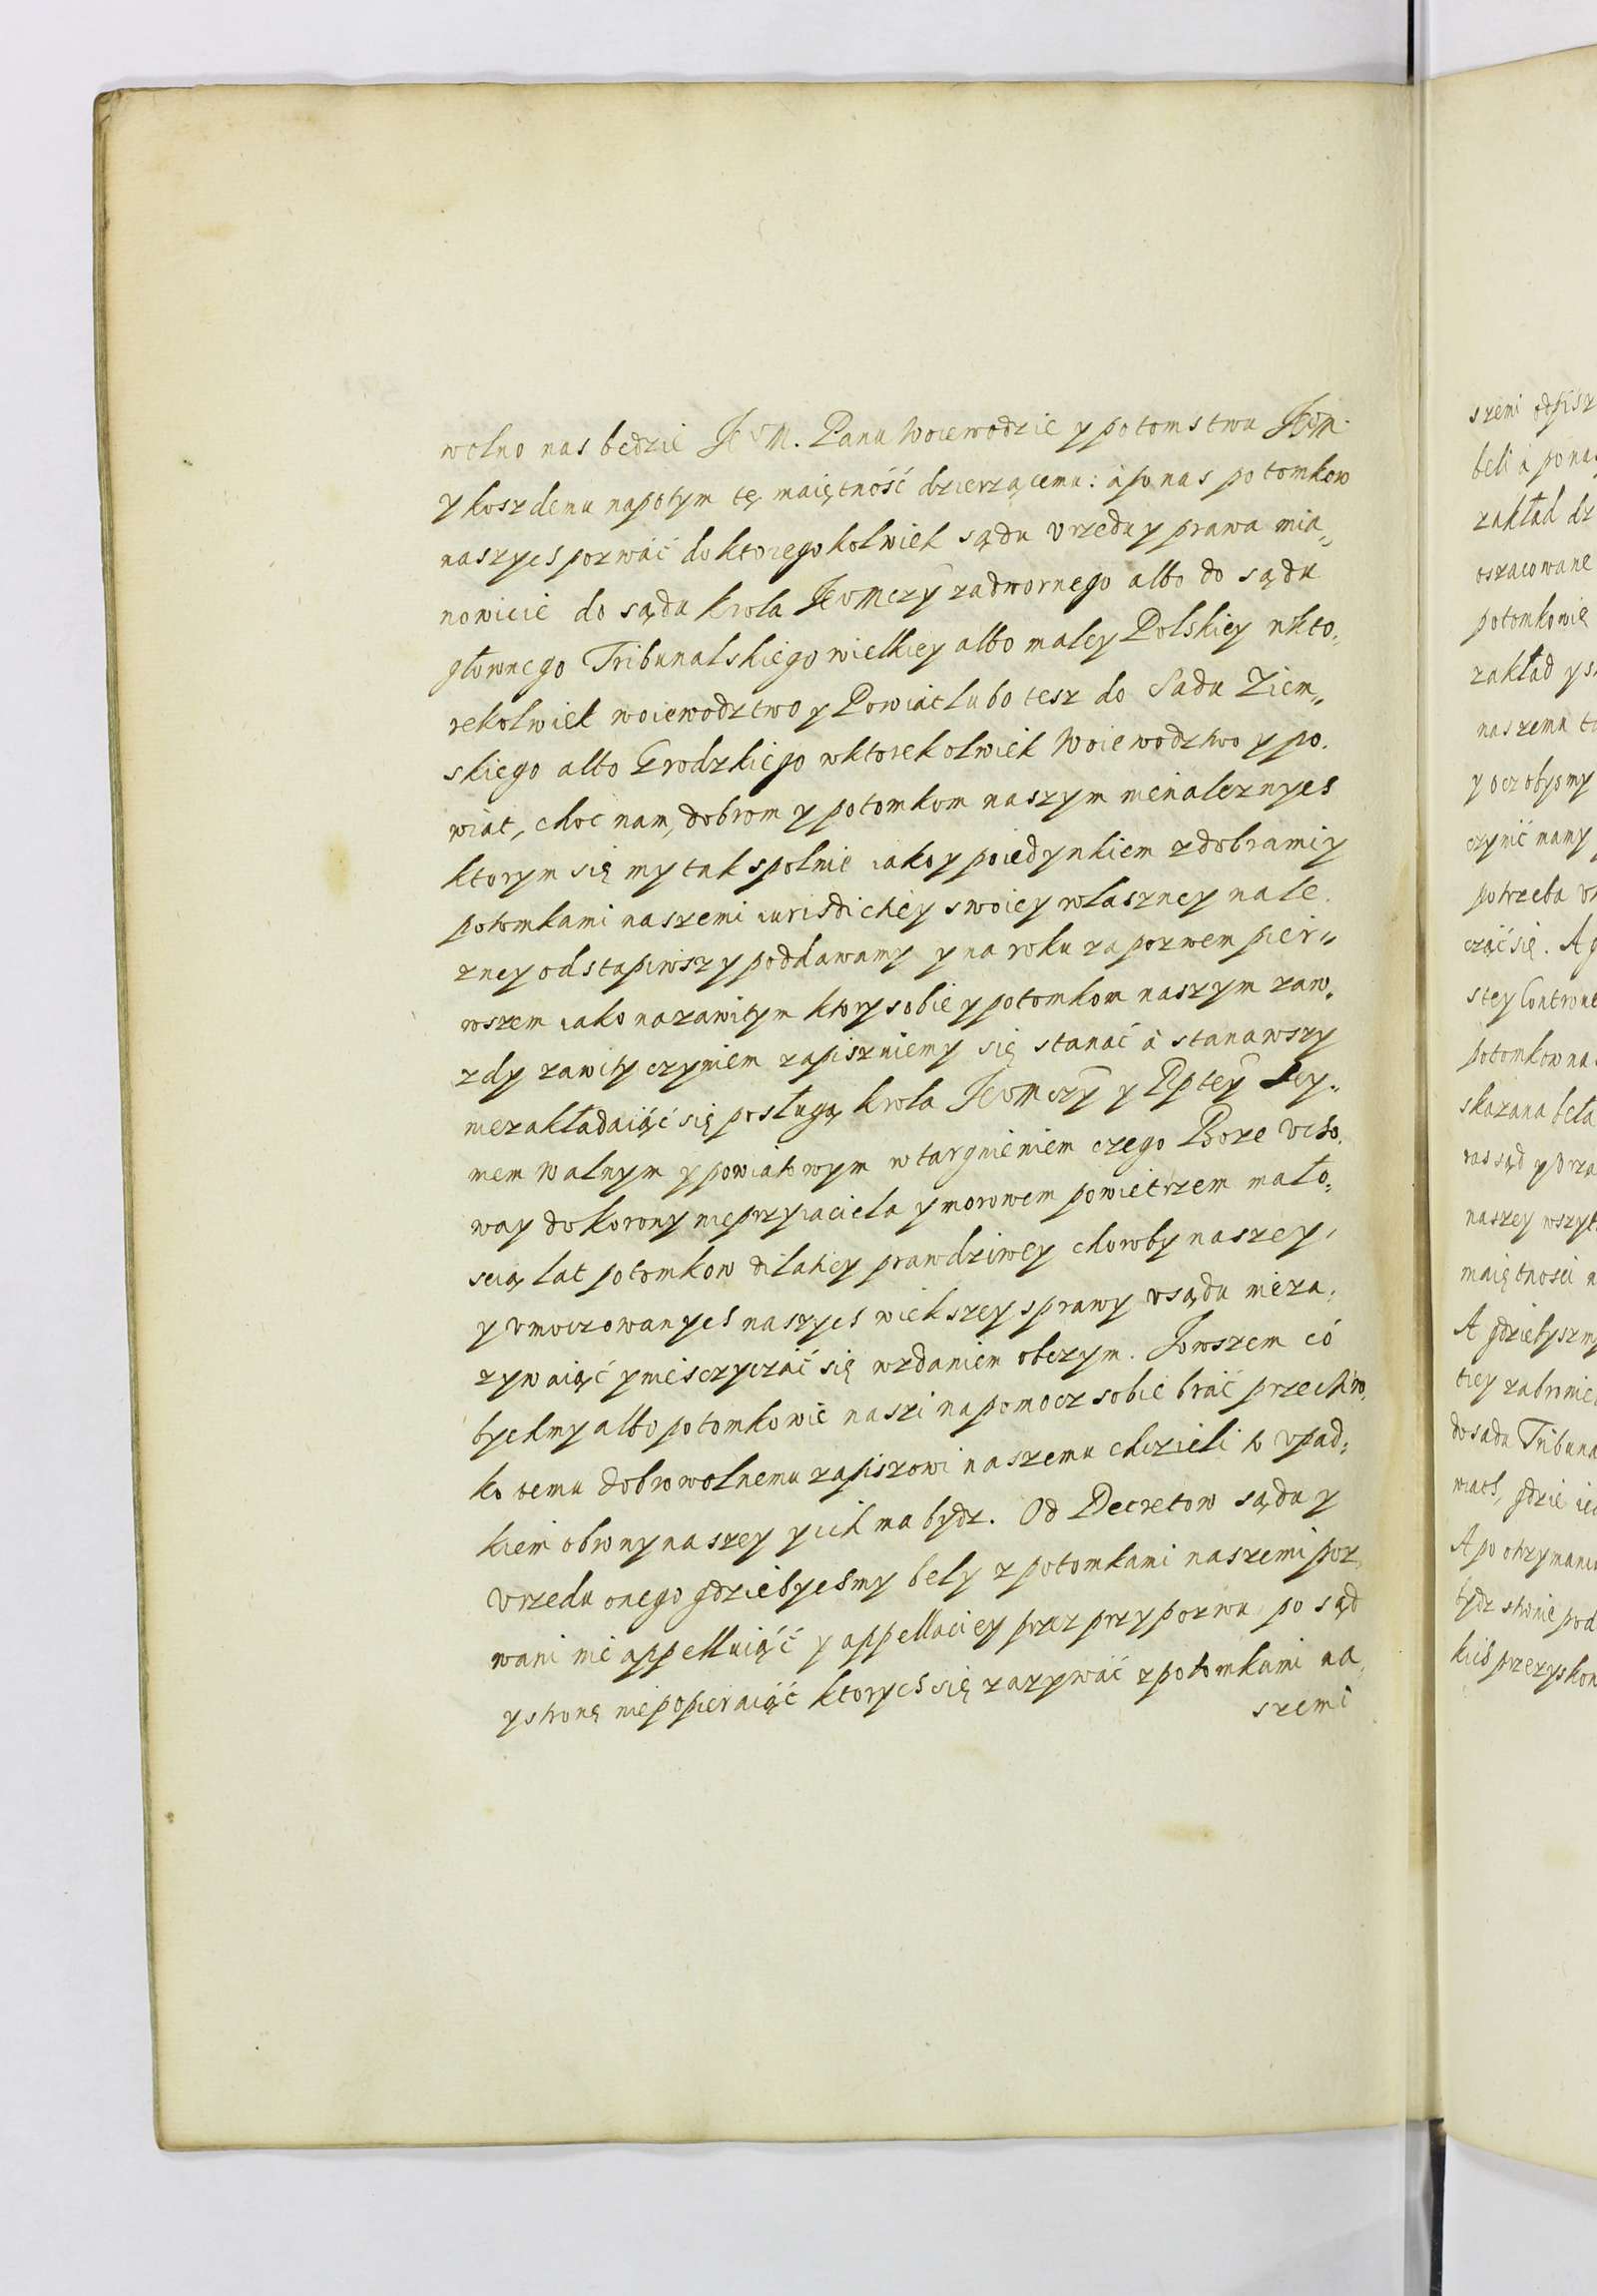 wolno nas będzie Je° M. Panu Woiewodzie y potomstwu Je°M.
y koszdemu napotym tę maiętność dzierzącemu: à po nas potomkow
naszych pozwáć do ktoregokolwiek sądu vrzedu y prawa mia„
nowicie do sądu krola Je°Mczỹ zadwornego albo do sądu
głownego Tribunalskiego wielkiey albo małey Polskiey wkto„
rekolwiek woiewodztwo y Powiát lubo tesz do Sadu Ziem„
skiego albo Grodzkiego wktorekolwiek Woiewodztwo y po„
wiat, choc nam, dobrom y potomkom naszym nienależnych
ktorym się my tak spolnie iako y poiedynkiem z dobrami y
potomkami naszemi iurisdickiey swoiey własznej nale„
zney odstąpiwszy poddawamy y na roku za pozwem pier„
wszem iako na zawitym ktory sobie y potomkom naszym zaw„
zdy zawity czyniem zapiszuiemy się stanáć à stanawszy
niezakładaiąć się posługą krola Je°Mczỹ y Rptey Sey„
mem walnym y powiatowym wtargnieniem czego Boze vcho„
way do korony nieprzyiaciela y morowem powietrzem mało„
scią lat potomkow dilatiey prawdziwey chorwby naszey,
y vmoczowanych naszych wiekszey sprawy vsądu nieza„
zywaiąć y nieszczyczáć się wzdaniem obczym. Jowszem có
bychmy albo potomkowie naszi na pomocz sobie bráć przeciw„
ko temu dobrowolnemu zapiszowi naszemu chczieli to vpad„
kiem obrony naszey y ich ma bydz. Od Decretow sądu y
Vrzedu onego gdziebychmy beły z potomkami naszemi poz„
wani nie appelluiąć y appellaciey przez przypozwu po sąd
y stronę niepopieraiąć ktorych się zazywáć z potomkami na„
szemi
szemi
beli à po na
zakład dz
oszacowane
potomkowie
zakład y s
naszemu
y oczobysmy
czynić mamy
potrzeba
czáć się. A
stey Controu
potomkow na
skazana beła
naszey wszyt
maiętnosci
A gdziebyszmy
do sadu Tribuna
gdzie
A po otrzymaniu
bydz